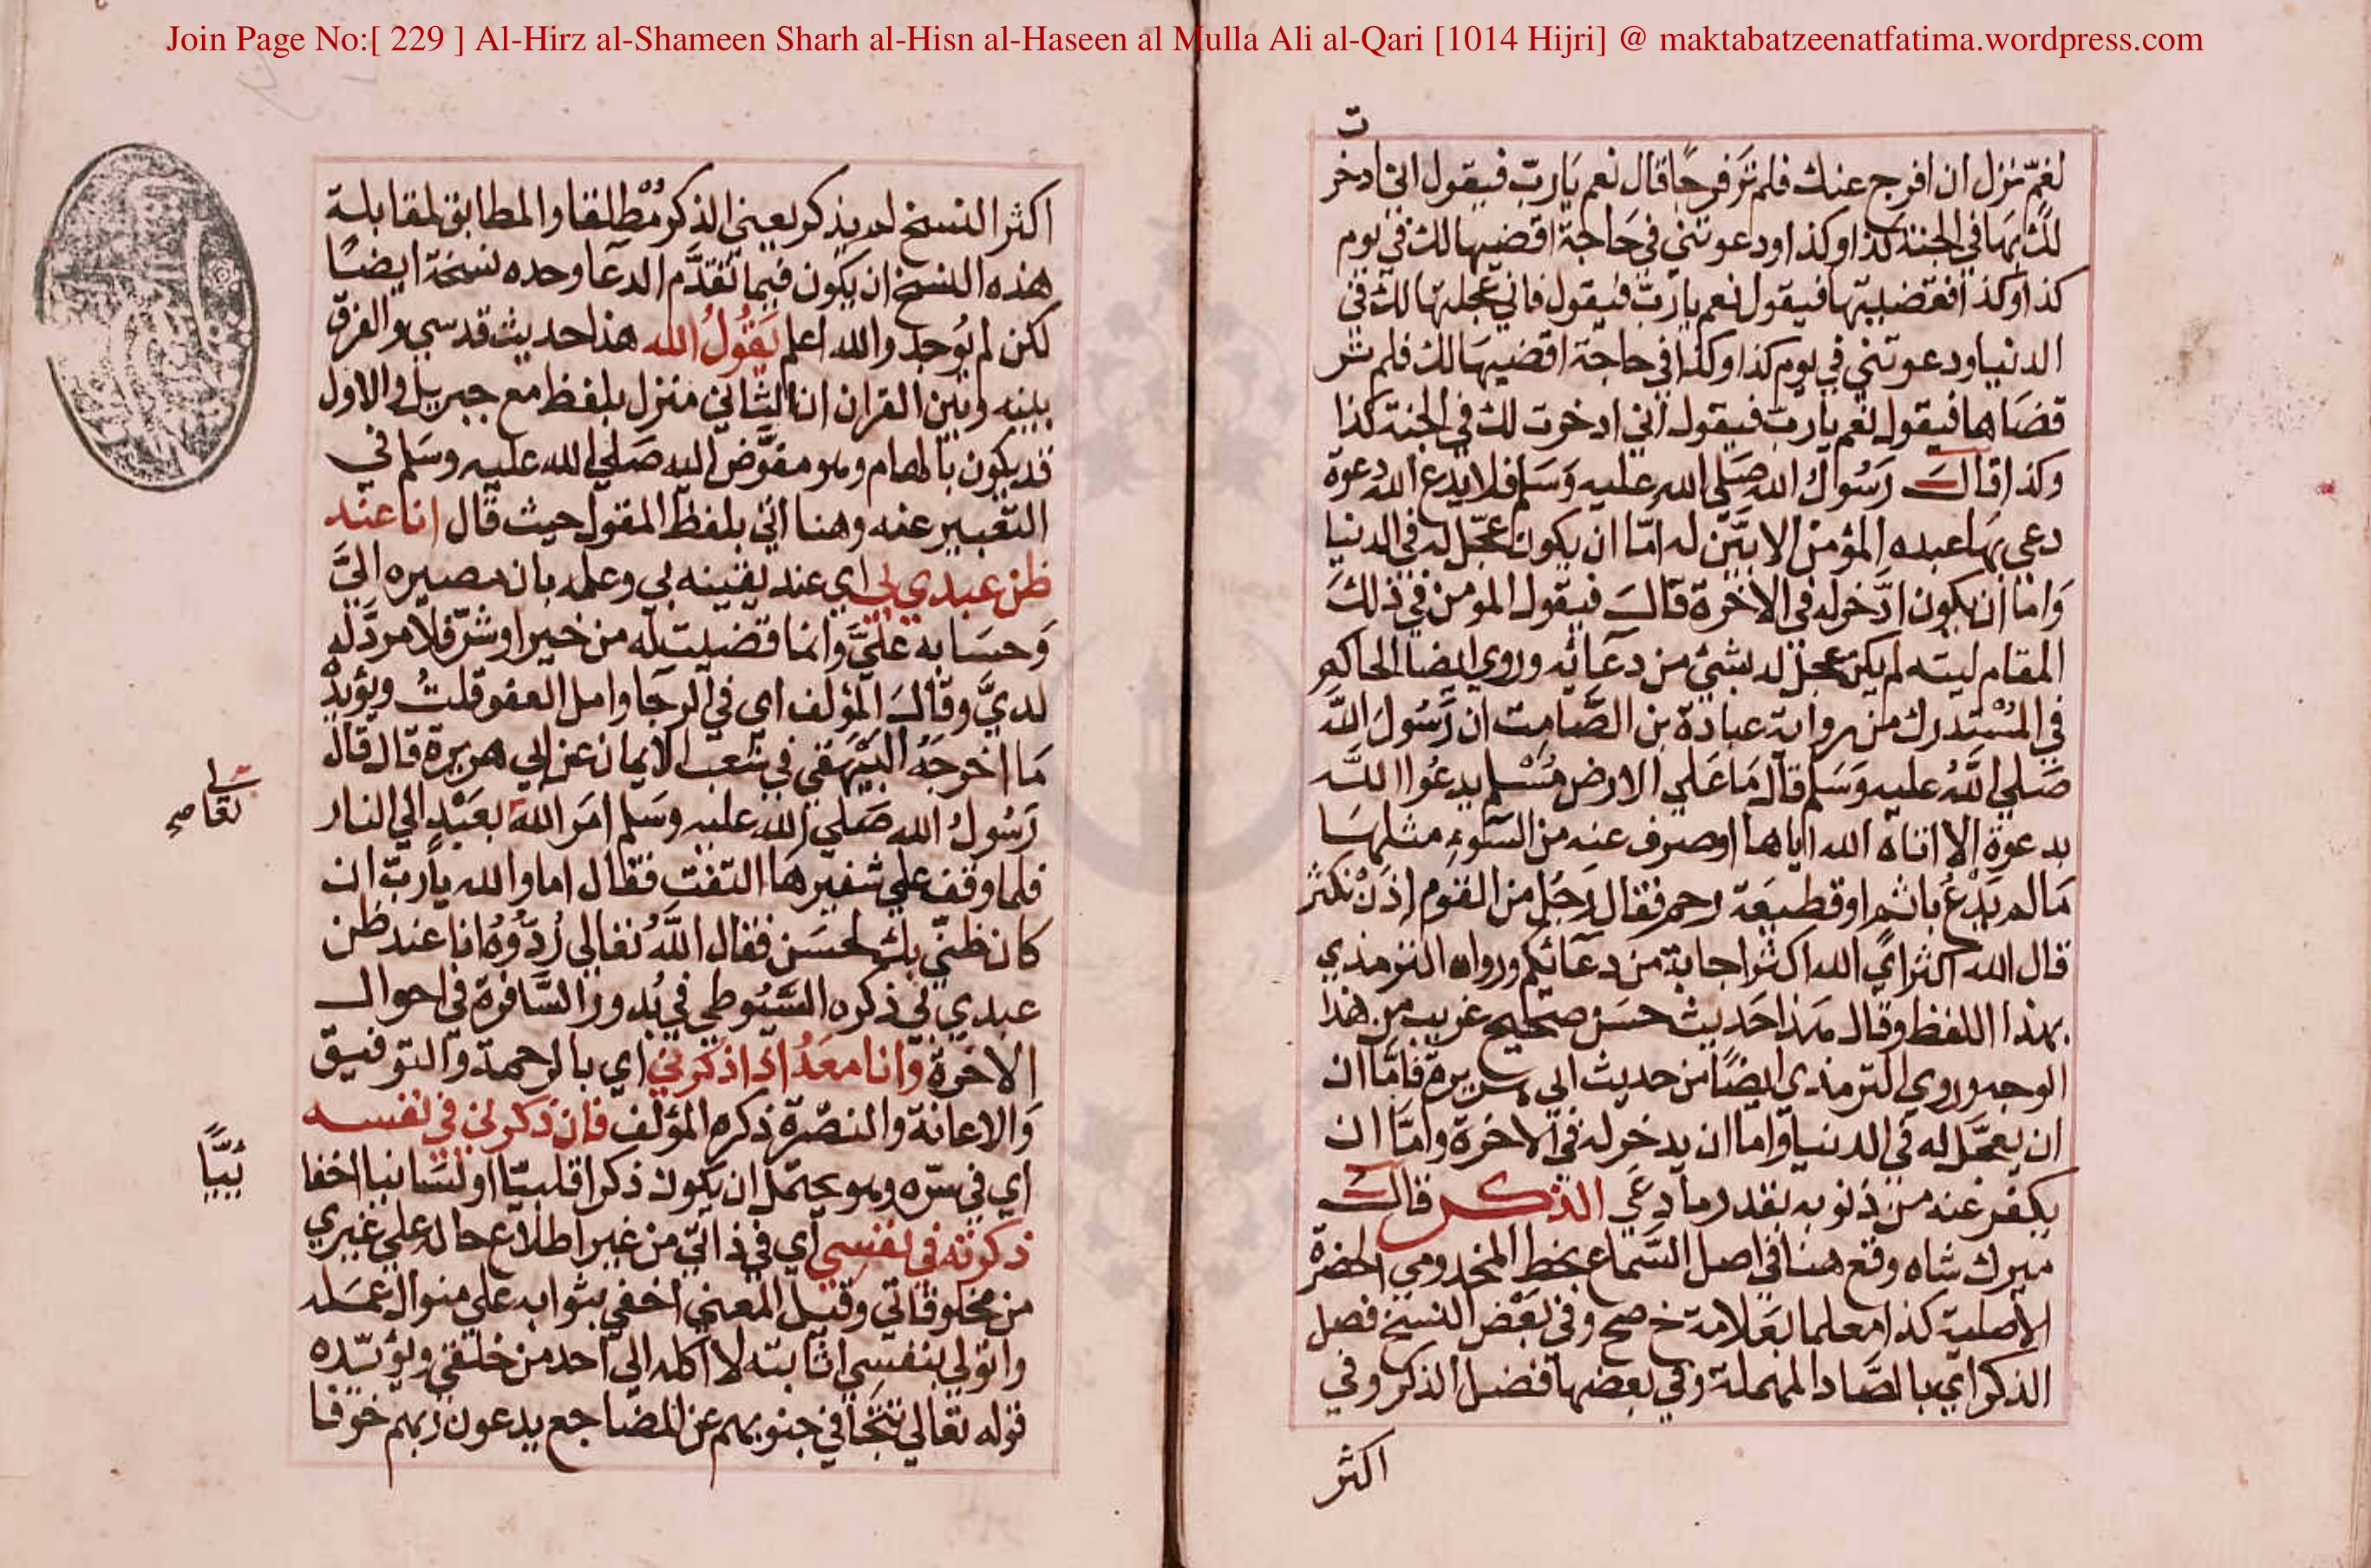 Join Page No:[ 229 ] Al-Hirz al-Shameen Sharh al-Hisn al-Haseen al Mulla Ali al-Qari [1014 Hijri] @ maktabatzeenatfatima.wordpress.com
ت
لغم نزل ان افرج عنك فلم تر فرجا قال نعم يارب فيقول اني ادخر
لك بها في الجنة كذا وكذا ودعوتني في حاجة اقضيها لك في يوم
كذا وكذا فقضيتها فيقول نعم يارب فيقول فاني عجلتها لك في
الدنيا ودعوتني في يوم كذا وكذا في حاجة اقضيها لك فلم تر
قضاها فيقول نعم يارب فيقول اني ادخرت لك في الجنة كذا
وكذا قال رسول الله صلى الله عليه وسلم فلا يدع الله دعوة
دعى بها عبده المؤمن الا بين له اما ان يكون عجل له في الدنيا
واما ان يكون ادخر له في الاخرة قال فيقول المومن في ذلك
المقام ليته لم يكن عجل له بشئ من دعائه وروي ايضا الحاكم
في المستدرك من رواية عبادة بن الصامت ان رسول الله
صلي الله عليه وسلم قال ما علي الارض مسلم يدعوا الله
بدعوة الا اتاه الله اياها او صرف عنه من السوء مثلها
مالم يدع باثم او قطيعة رحم فقال رجل من القوم اذن نكثر
قال الله اكثر اي الله اكثر اجابة من دعائكم ورواه الترمذي
بهذا اللفظ وقال هذا حديث حسن صحيح غريب من هذا
الوجه وروي الترمذي ايضا من حديث ابي هريرة فاما ان
ان يعجل له في الدنيا واما ان يدخر له في الاخرة واما ان
يكفر عنه من ذنوبه بقدر ما دعي الذكر قال
ميرك شاه وقع هنا في اصل السماع بخط المخدومي الحضرة
الاصلية كذا معلما بعلامة خ صح وفي بعض النسخ فصل
الذكر اي بالصاد المهملة وفي بعضها فضل الذكر وفي
اكثر
اكثر النسخ لم يذكر يعني الذكر مطلقا والمطابق لمقابلة
هذه النسخ ان يكون فيما تقدم الدعا وحده نسخة ايضا
لكن لم يوجد والله اعلم يقول الله هذا حديث قدسي والفرق
بينه وبين القران ان الثاني منزل بلفظ مع جبريل والاول
قد يكون بالهام وهو مفوض اليه صلي الله عليه وسلم في
التعبير عنه وهنا اتي بلفظ المقول حيث قال انا عند
ظن عبدي بي اي عند يقينه بي وعلمه بان مصيره الي
وحسابه علي وانما قضيت له من خير او شر فلا مرد له
لدي وقال المؤلف اي في الرجا وامل العفو قلت ويؤيد
ما اخرجه البيهقي في شعب الايمان عن ابي هريرة قال قال
رسول الله صلي الله عليه وسلم امر الله بعبد الي النار
فلما وقف علي شفيرها التفت فقال اما والله يارب ان
كان ظني بك لحسن فقال الله تعالي ردوه انا عند ظن
عبدي بي ذكره السيوطي في بدور السافرة في احوال
الاخرة وانا معه اذا ذكرني اي بالرحمة والتوفيق
والاعانة والنصرة ذكره المؤلف فان ذكرني في نفسه
اي في سره وهو يحتمل ان يكون ذكرا قلبيا او لسانيا اخفا
ذكرته في نفسي اي في ذاتي من غير اطلاع حاله علي غيري
من مخلوقاتي وقيل المعني اخفي بثوابه علي منوال عمله
واتولي بنفسي اثابته لا اكله الي احد من خلقي ويؤيده
قوله تعالي تتجافي جنوبهم عن المضاجع يدعون ربهم خوفا